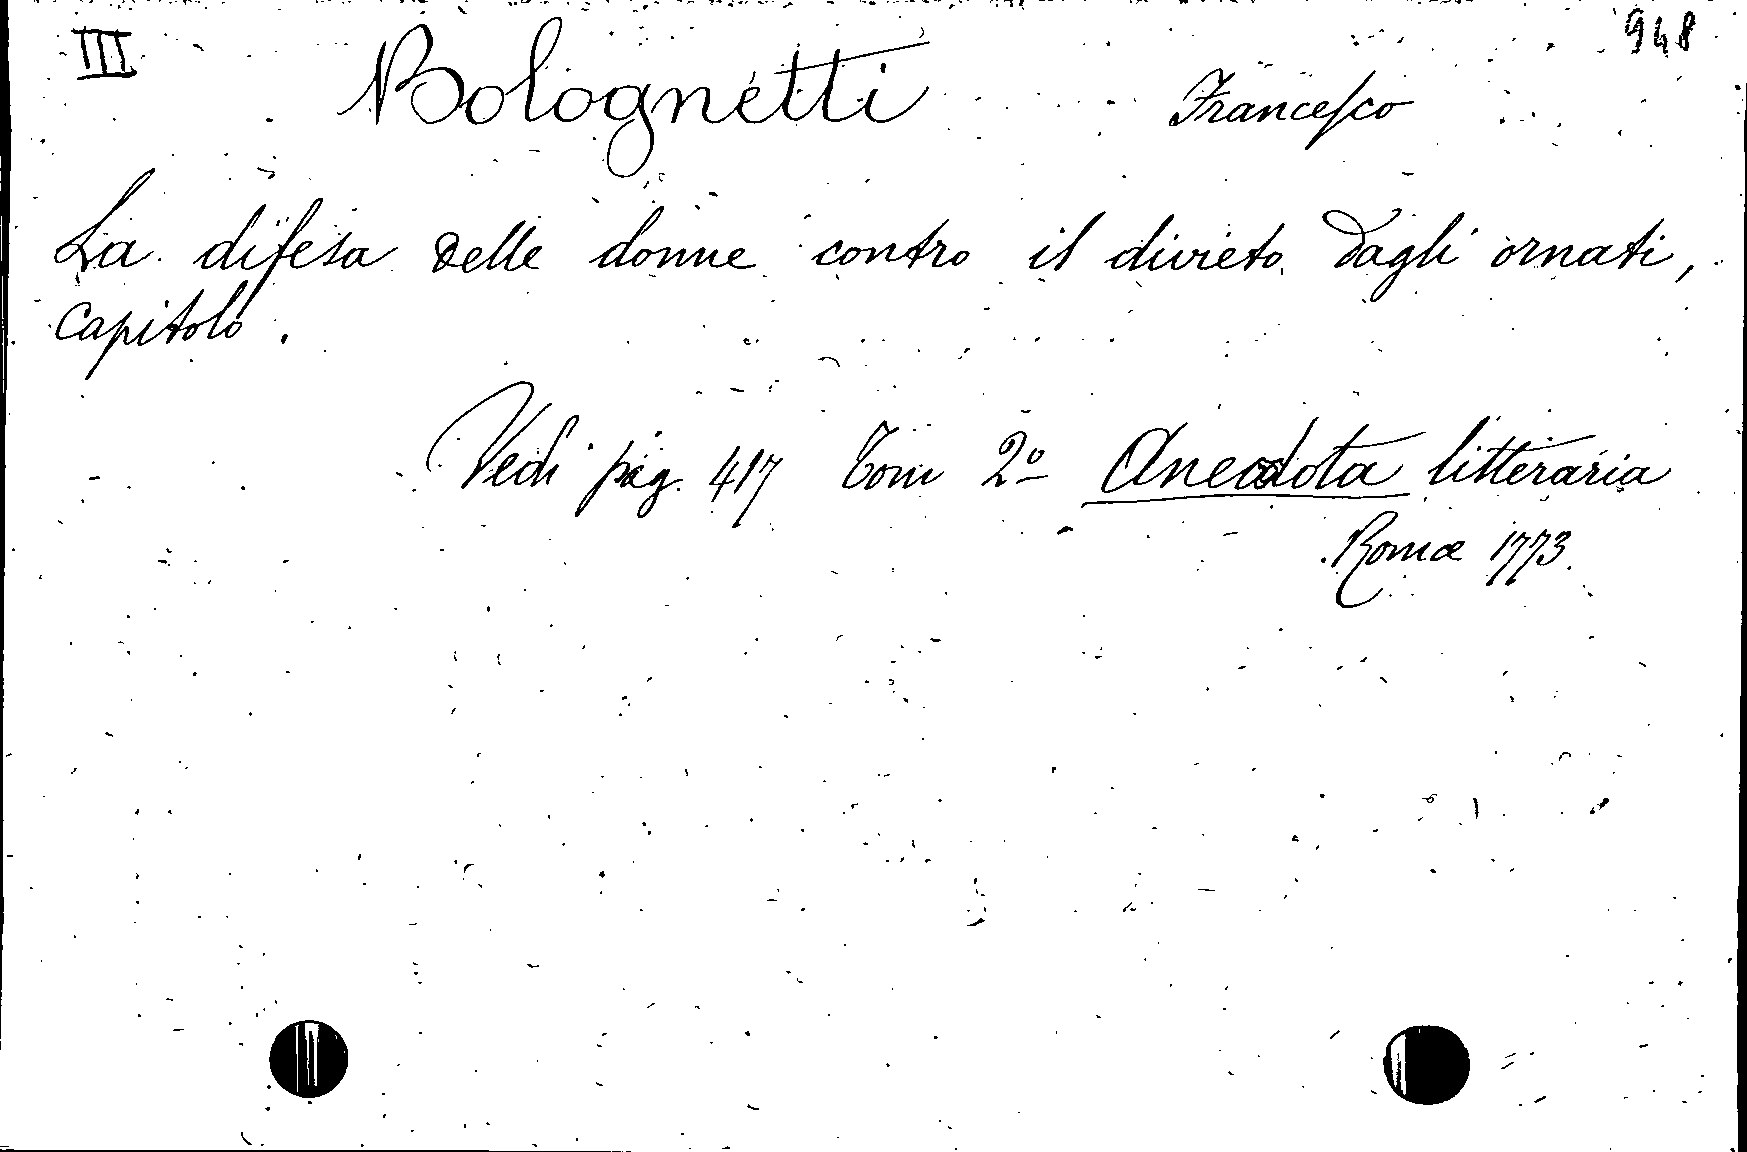 III
948
Bolognetti Francesco
La difesa delle donne contro il divieto dagli ornati,
capitolo.
Vedi pag. 417 Tom 2º Anecdota litteraria
Romæ 1773.